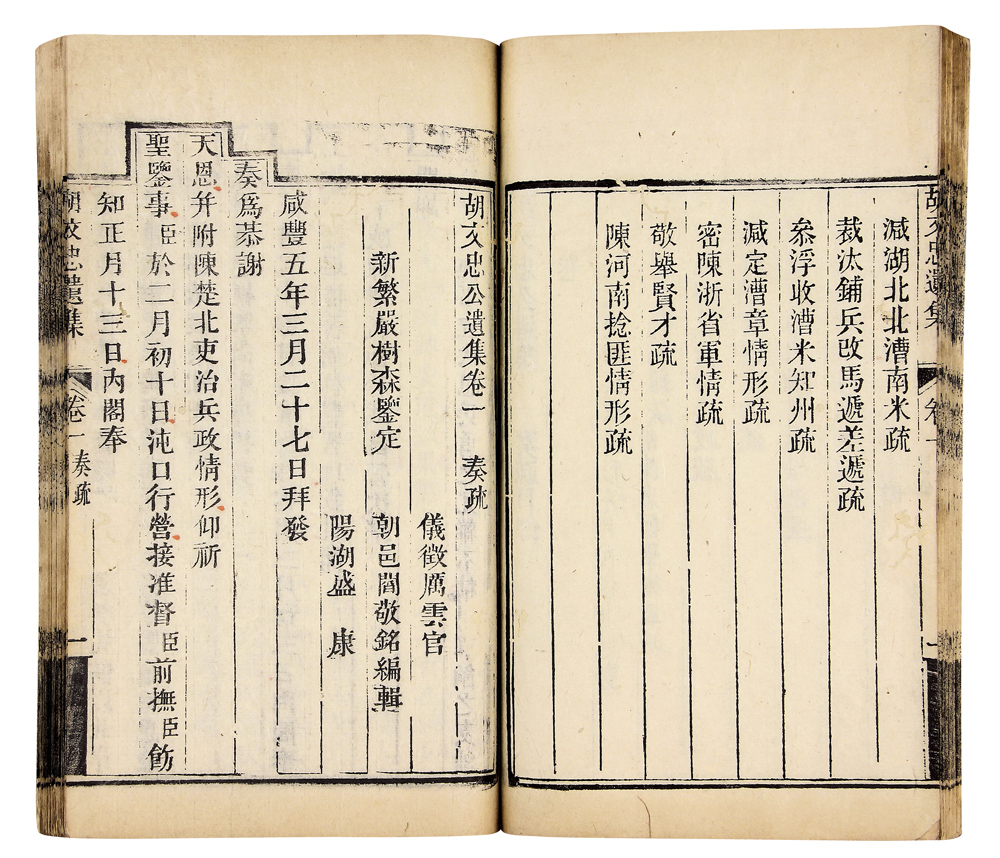 胡文忠遺集
卷一
一
減湖北北漕南米疏
裁汰鋪兵改馬遞差遞疏
叅浮收漕米知州疏
減定漕章情形疏
密陳浙省軍情疏
敬舉賢才疏
陳河南捻匪情形疏
胡文忠公遺集卷一　奏疏
儀徵厲雲官
新繁嚴樹森鑒定　朝邑閻敬銘編輯
陽湖盛　康
咸豐五年三月二十七日拜發
奏爲恭謝
天恩幷附陳楚北吏治兵政情形仰祈
聖鑒事臣於二月初十日沌口行營接准督臣前撫臣飭
知正月十三日內閣奉
胡文忠遺集
卷一奏疏
一